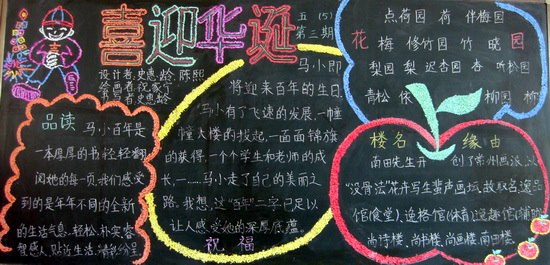 喜迎华诞
五(5)
第三期
设计者:史惠龄 陈熙
绘画者:祝家行
书写者:史惠龄
品读
马小百年是
一本厚厚的书,轻轻翻
阅她的每一页,我们感受
到的是年年不同的全新
的生活气息。轻松、朴实、睿
智感人,贴近生活,清新纷呈
马小即
将迎来百年的生日
马小有了飞速的发展,一幢
幢大楼的拔起,一面面锦旗
的获得,一个个学生和老师的成
长,……马小走了自己的美丽之
路。我想,这“百年”二字已足以
让人感受她的深厚底蕴。
祝福
点荷园 荷 伴梅园
花 梅 修竹园 竹 晓 园
梨园 梨 迟杏园 杏 听松园
青松 依 柳园 柳
楼名 缘由
南田先生开 创了常州画派,以
“没骨法”花卉写生蜚声画坛,故取名:逸品
馆(食堂)、逸格馆(体育)、逸趣馆(辅助)
尚诗楼、尚书楼、尚画楼、南田楼。